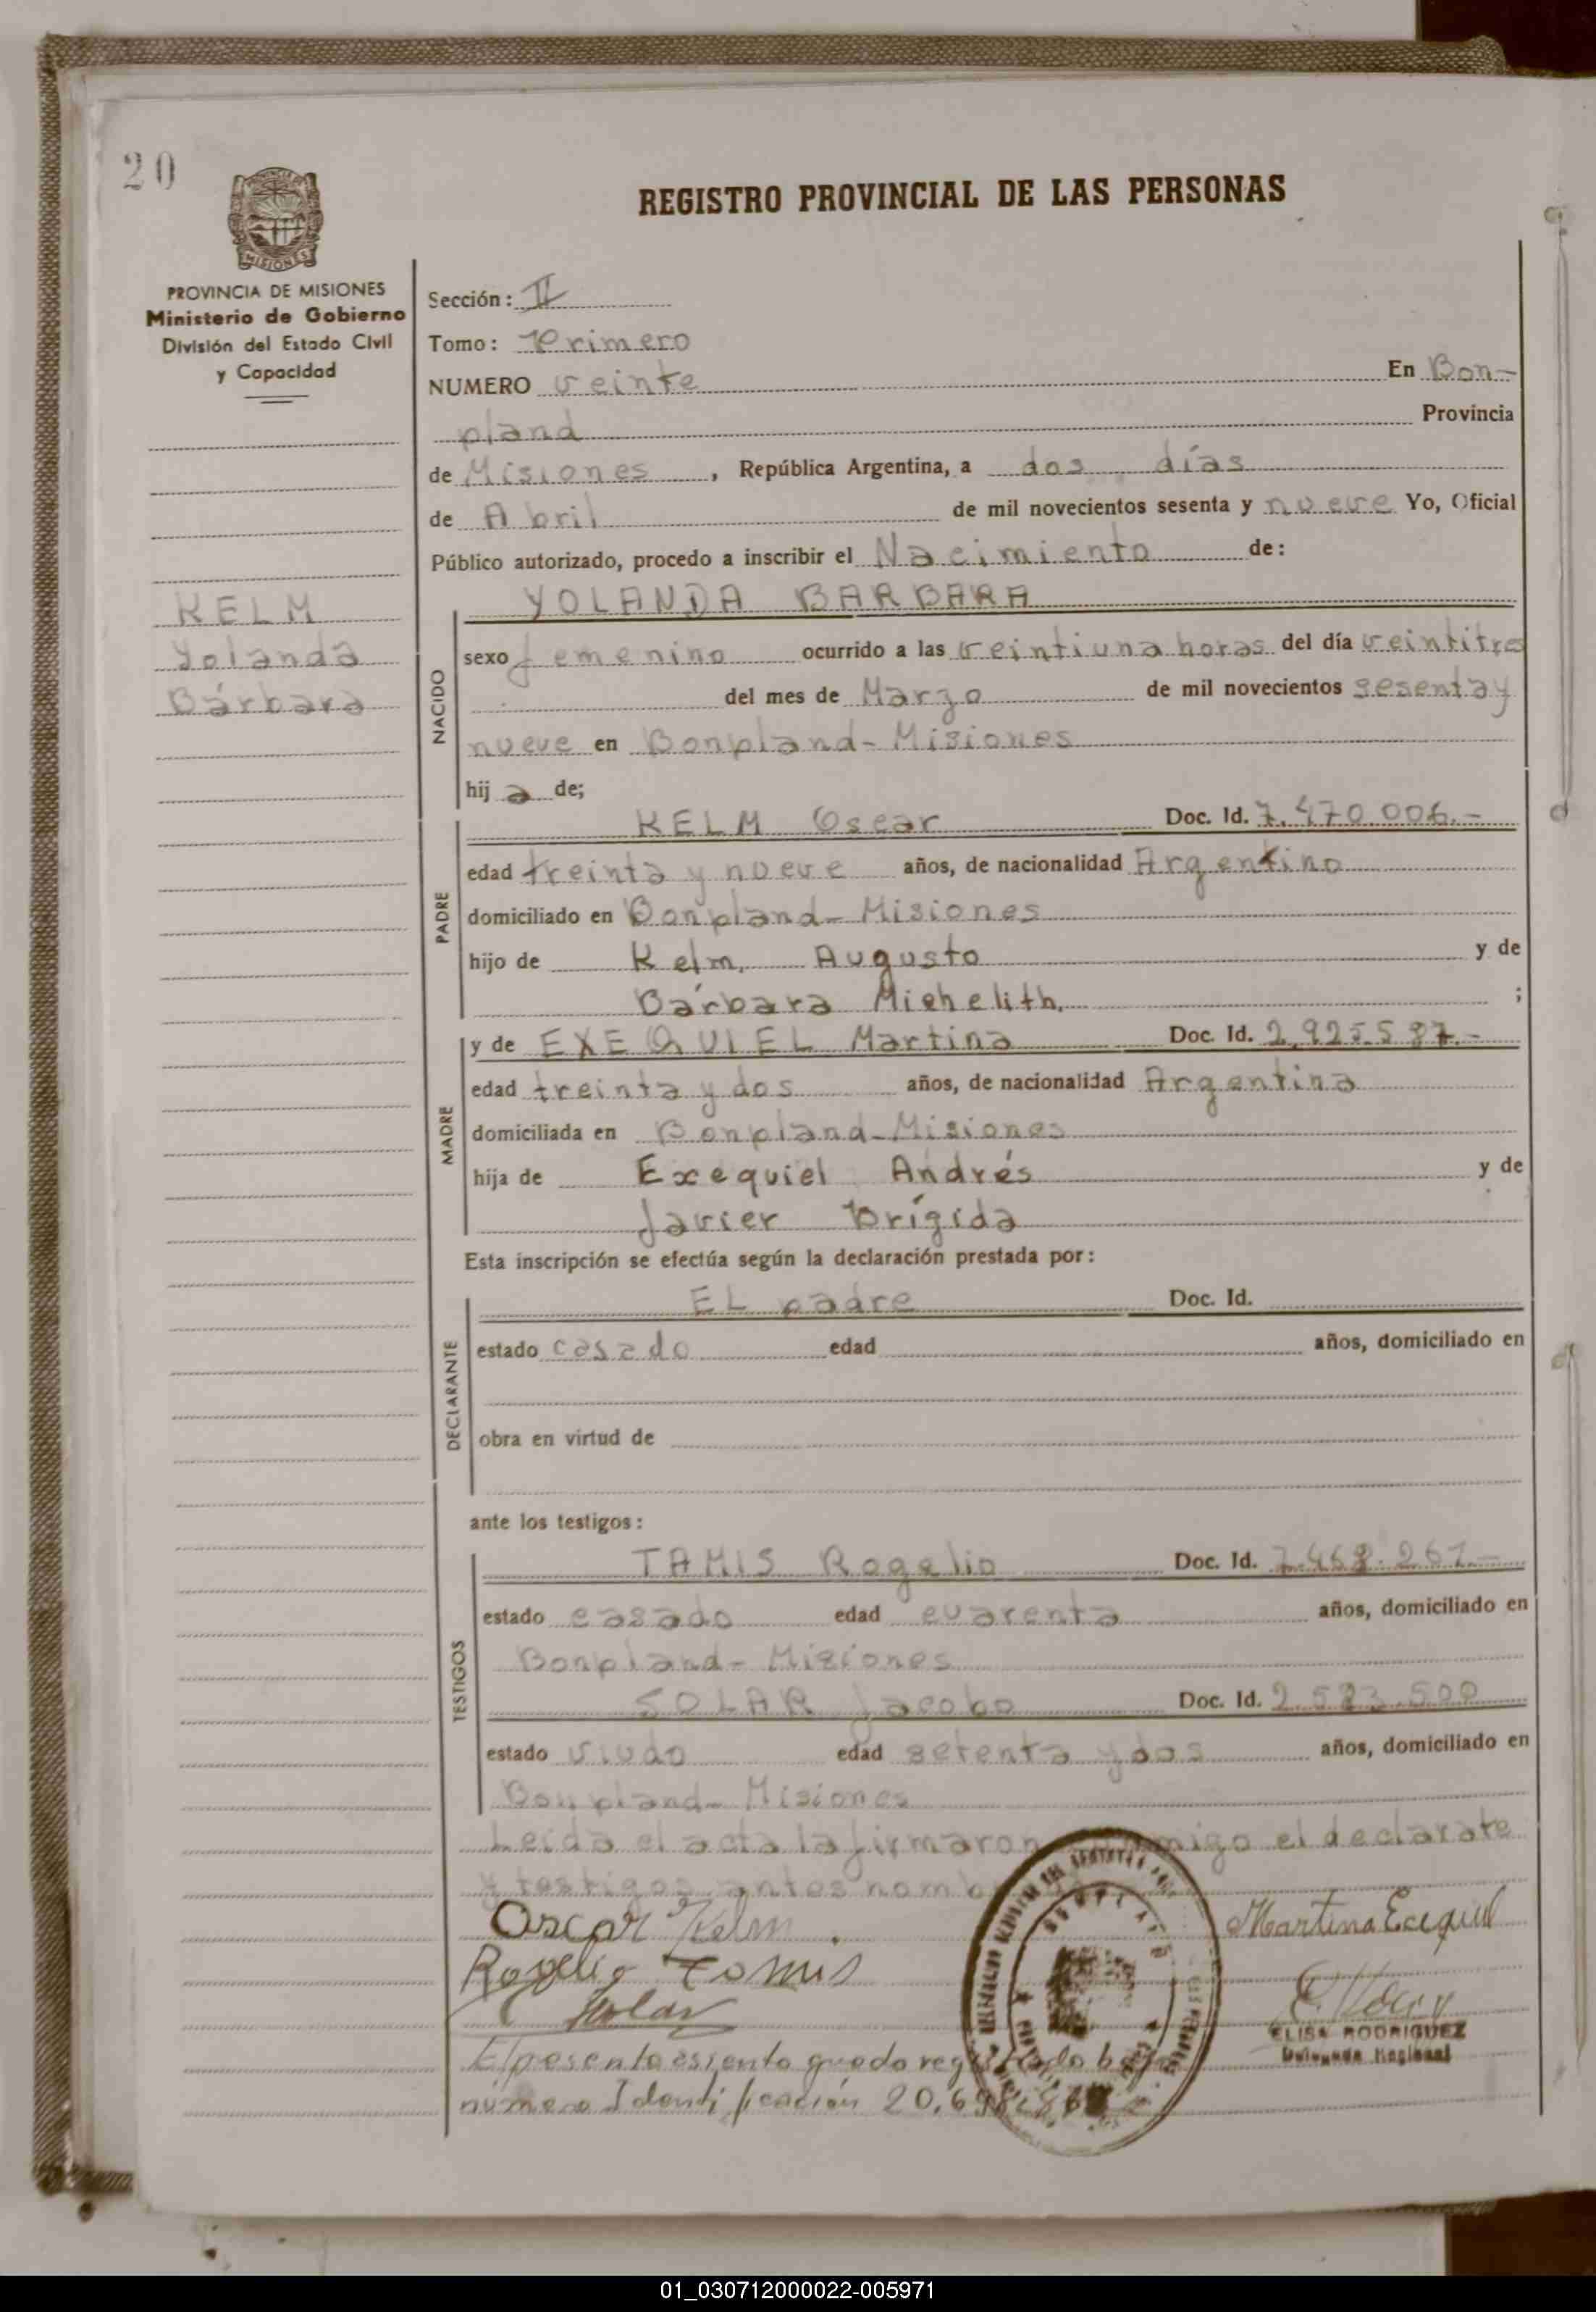 20
REGISTRO PROVINCIAL DE LAS PERSONAS
MISIONES
PROVINCIA DE MISIONES
Ministerio de Gobierno
División del Estado Civil
y Capacidad
KELM
Yolanda
Bárbara
Sección: II
Tomo: Primero
NUMERO veinte En Bon-
pland Provincia
de Misiones, República Argentina, a dos días
de Abril de mil novecientos sesenta y nueve Yo, Oficial
Público autorizado, procedo a inscribir el Nacimiento de:
NACIDO
YOLANDA BARBARA
sexo femenino ocurrido a las veintiuna horas del día veintitres
del mes de Marzo de mil novecientos sesenta y
nueve en Bonpland-Misiones
hij a de;
PADRE
KELM Oscar Doc. Id. 7.470.006.-
edad treinta y nueve años, de nacionalidad Argentino
domiciliado en Bonpland-Misiones
hijo de Kelm, Augusto y de
Bárbara Michelith. ;
MADRE
y de EXEQUIEL Martina Doc. Id. 2.925.587.-
edad treinta y dos años, de nacionalidad Argentina
domiciliada en Bonpland-Misiones
hija de Exequiel Andrés y de
Javier Brígida
Esta inscripción se efectúa según la declaración prestada por:
DECLARANTE
EL padre Doc. Id.
estado casado edad años, domiciliado en
obra en virtud de
ante los testigos:
TESTIGOS
TAMIS Rogelio Doc. Id.
estado casado edad cuarenta años, domiciliado en
Bonpland-Misiones
SOLAR Jacobo Doc. Id.
estado viudo edad setenta y dos años, domiciliado en
Bonpland-Misiones
Leída el acta la firmaron el declarate
y testigos antes
Oscar Kelm. Martina Exequiel
Rogelio Tamis
Solar
ELISA RODRIGUEZ
El presente asiento queda
número Identificación
01_030712000022-005971